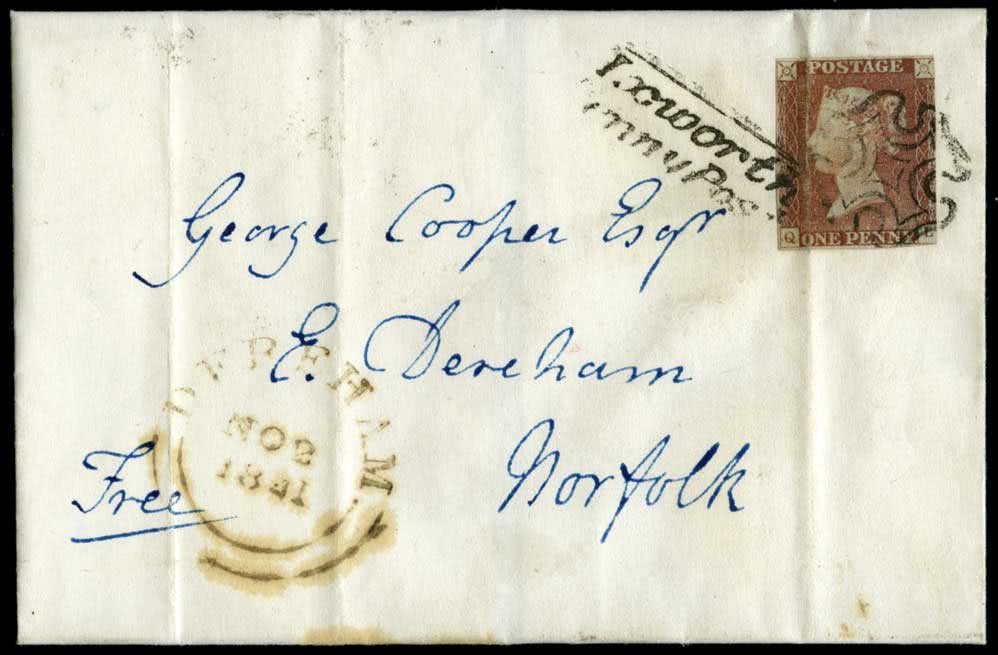 POSTAGE
Q ONE PENNY
Ixworth
George Cooper Esqr
E. Dereham
Norfolk
Free
DEREHAM
NO 2
1841